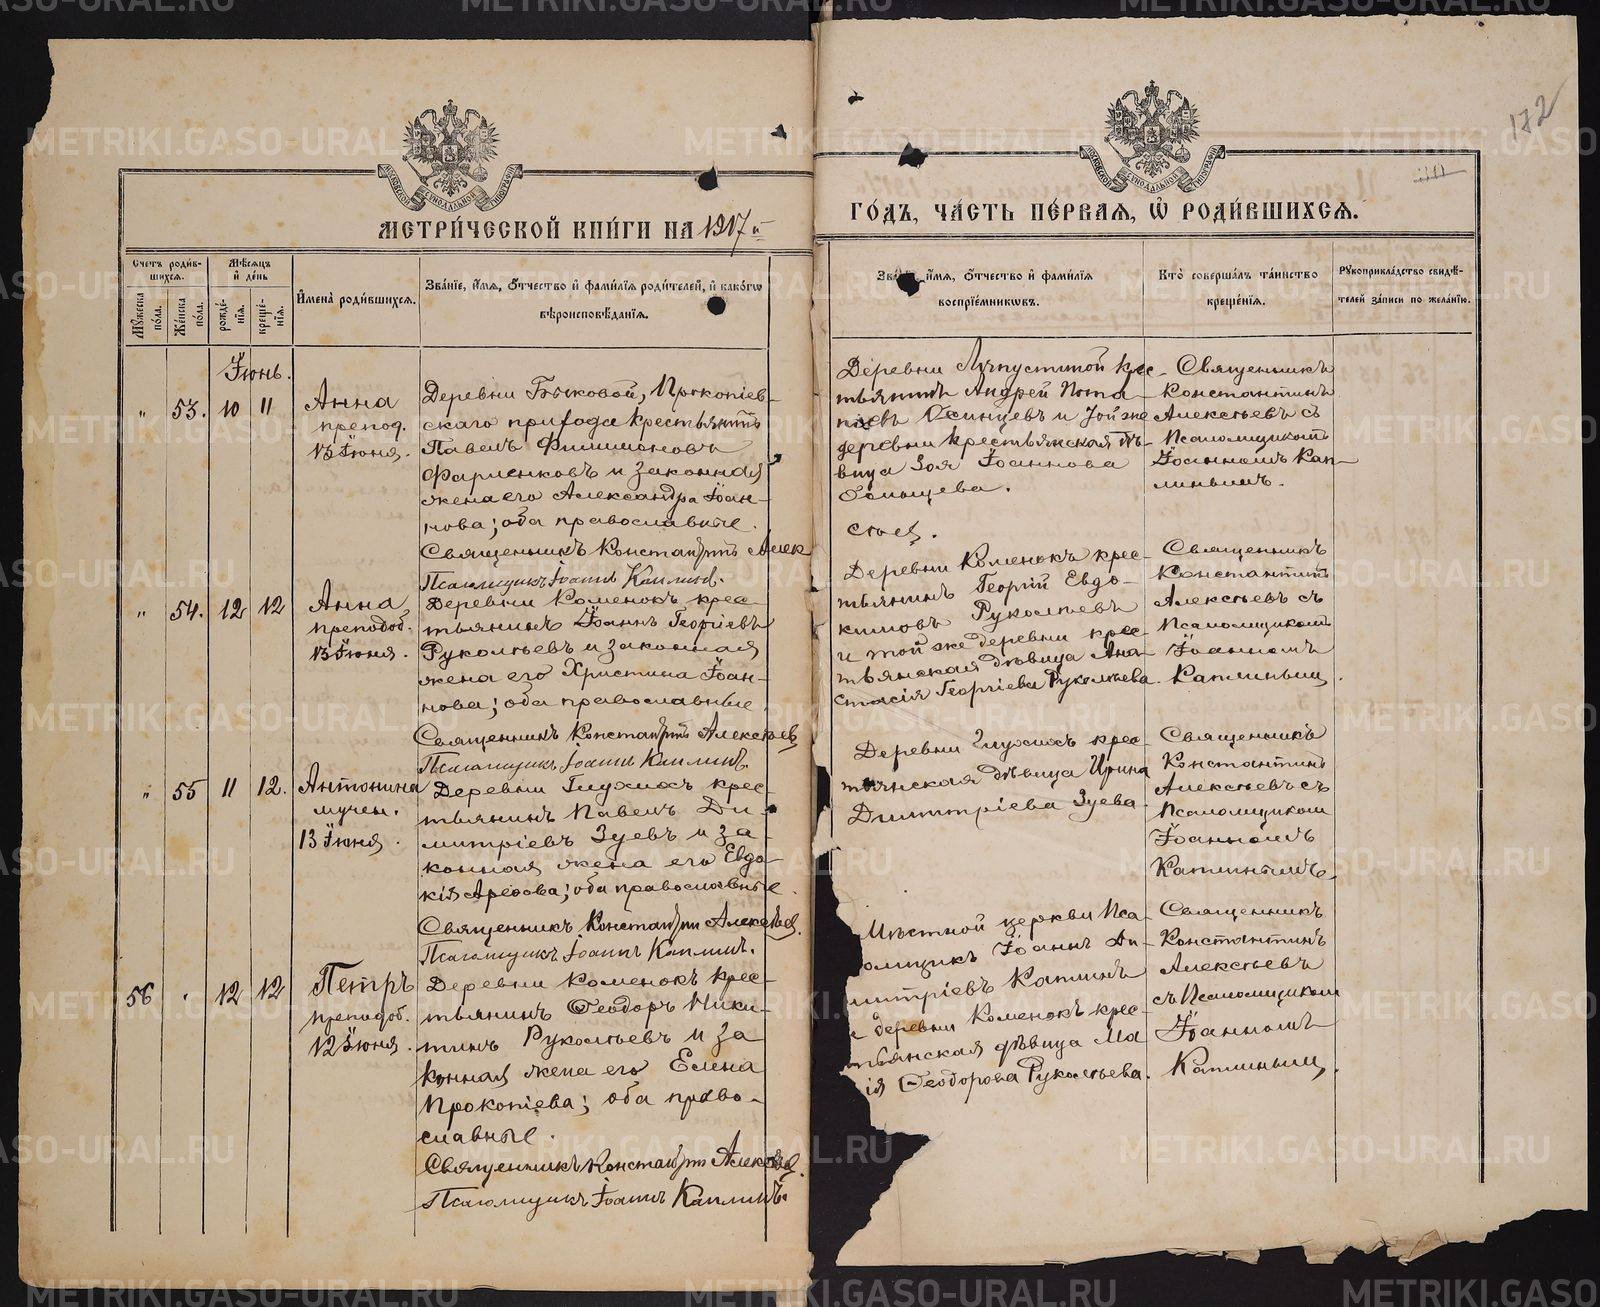 172
МОСКОВСКОЙ СѴНОДАЛЬНОЙ ТИПОГРАФІИ
МОСКОВСКОЙ СѴНОДАЛЬНОЙ ТИПОГРАФІИ
МЕТРИ́ЧЕСКОЙ КНИ́ГИ НА 1917 й
ГО́ДЪ, ЧА́СТЬ ПЕ́РВАЯ, Ѡ҆ РОДИ́ВШИХСЯ.
Счетъ роди́вшихся.
Мꙋжеска по́ла.
Же́нска по́ла.
Мѣ́сяцъ и҆ де́нь
рожде́нїя.
креще́нїя.
И҆мена̀ роди́вшихся.
Зва́нїе, и҆́мя, ѻ҆́тчество и҆ фами́лїя роди́телей, и҆ како́гѡ
вѣроисповѣ́данїя.
Зва́нїе, и҆́мя, ѻ҆́тчество и҆ фами́лїя
воспрїе́мникѡвъ.
Кто̀ соверша́лъ та́инство
креще́нїя.
Рꙋкоприкла́дство свидѣ́-
телей за́писи по жела́нїю.
Іюнь.
„ 53. 10 11
Анна
препод.
13 Іюня.
Деревни Быковой, Прокопіев-
скаго прихода крестьянинъ
Павелъ Филимоновъ
Фарленковъ и законная
жена его Александра Іоан-
нова; оба православные.
Священникъ Константинъ Алек
сѣев.
Псаломщикъ Іоаннъ Каплинъ.
Андрей Пота-
повъ Осинцевъ и той же
деревни крестьянская дѣ-
вица Зоя Іоаннова
Священникъ
Константинъ
Алексѣевъ съ
Псаломщикомъ
Іоанномъ Кап-
линымъ.
„ 54. 12 12
Анна
преподоб.
13 Іюня.
Деревни Коменокъ крес-
тьянинъ Іоаннъ Георгіевъ
Рукомѣевъ и законная
жена его Христина Іоан-
нова; оба православные
Священникъ Константинъ Алексѣев
Псаломщикъ Іоаннъ Каплинъ.
Деревни Коменокъ крес-
тьянинъ Георгій Евдо-
кимовъ Рукомѣевъ
и той же деревни крес-
тьянская дѣвица Ана-
стасія Георгіева Рукомѣева.
Священникъ
Константинъ
Алексѣевъ съ
Псаломщикомъ
Іоанномъ
Каплинымъ.
„ 55 11 12.
Антонина
мучен.
13 Іюня.
Деревни Глухихъ крес-
тьянинъ Павелъ Ди-
митріевъ Зуевъ и за-
конная жена его Евдо-
кія; оба православные.
Священникъ Константинъ Алексѣев.
Псаломщикъ Іоаннъ Каплинъ.
Деревни Глухихъ крес-
тьянская дѣвица Ирина
Димитріева Зуева.
Священникъ
Константинъ
Алексѣевъ съ
Псаломщиком
Іоанномъ
Каплинымъ.
56 . 12 12
Петръ
преподоб.
12 Іюня.
Деревни Коменокъ крес-
тьянинъ Ѳеодоръ Ники-
тинъ Рукомѣевъ и за
конная жена его Елена
Прокопіева; оба право-
славные.
Священникъ Константинъ Алексѣев.
Псаломщикъ Іоаннъ Каплинъ.
Мѣстной церкви Пса-
омщикъ Іоаннъ Ди-
митріевъ Каплинъ
и деревни Коменокъ крес-
тьянская дѣвица Ма
ія Ѳеодорова Рукомѣева.
Священникъ
Константинъ
Алексѣевъ
съ Псаломщиком
Іоанномъ
Каплинымъ.
METRIKI.GASO-URAL.RU